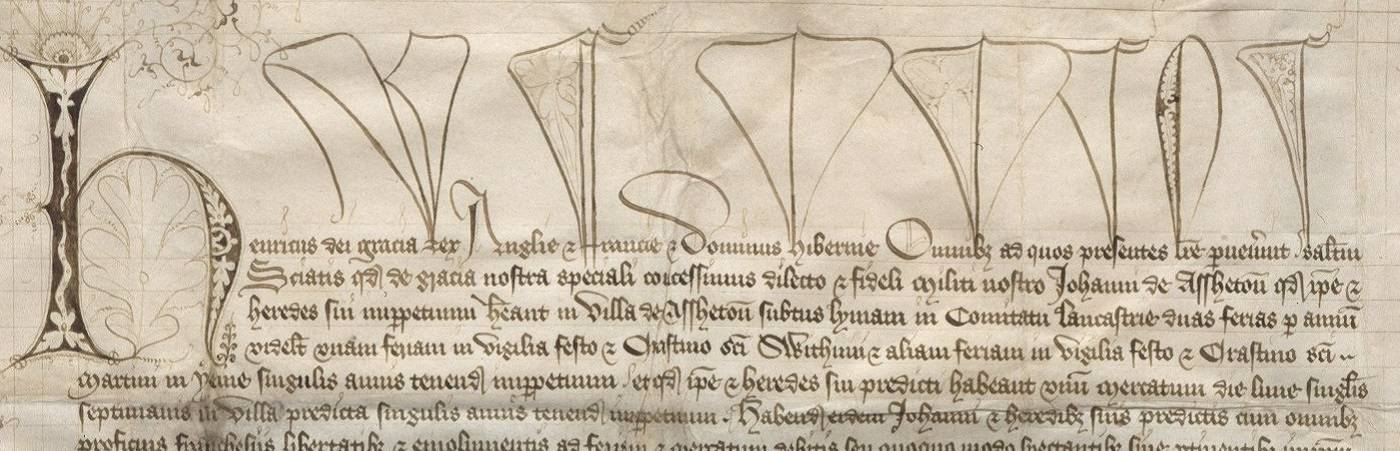 Henricus dei gracia Rex Anglie & Francie & Dominus Hibernie Omnibz ad quos presentes lre pueñint saltm
Sciatis qd de gracia nostra speciali concessimus dilecto & fideli militi nostro Johanni de Assheton qd ipe &
heredes sui imppetuum heant in villa de Assheton subtus lymam in Comitatu Lancastrie duas ferias p annu
videlt vnam feriam in vigilia festo & Crastino sci Swithini & aliam feriam in vigilia festo & Crastino sci
Martini in yeme singulis annis tenend imppetuum et qd ipe & heredes sui predicti habeant vnu mercatum die lune singlis
septimanis in villa predicta singulis annis tenend imppetuum Habend eidem Johanni & heredibz suis predictis cum omnibz
proficuis ffranchesiis libertatibz & emolimentis ad feriam & mercatum debitis seu quoquo modo spectantibz siue ptinentibz